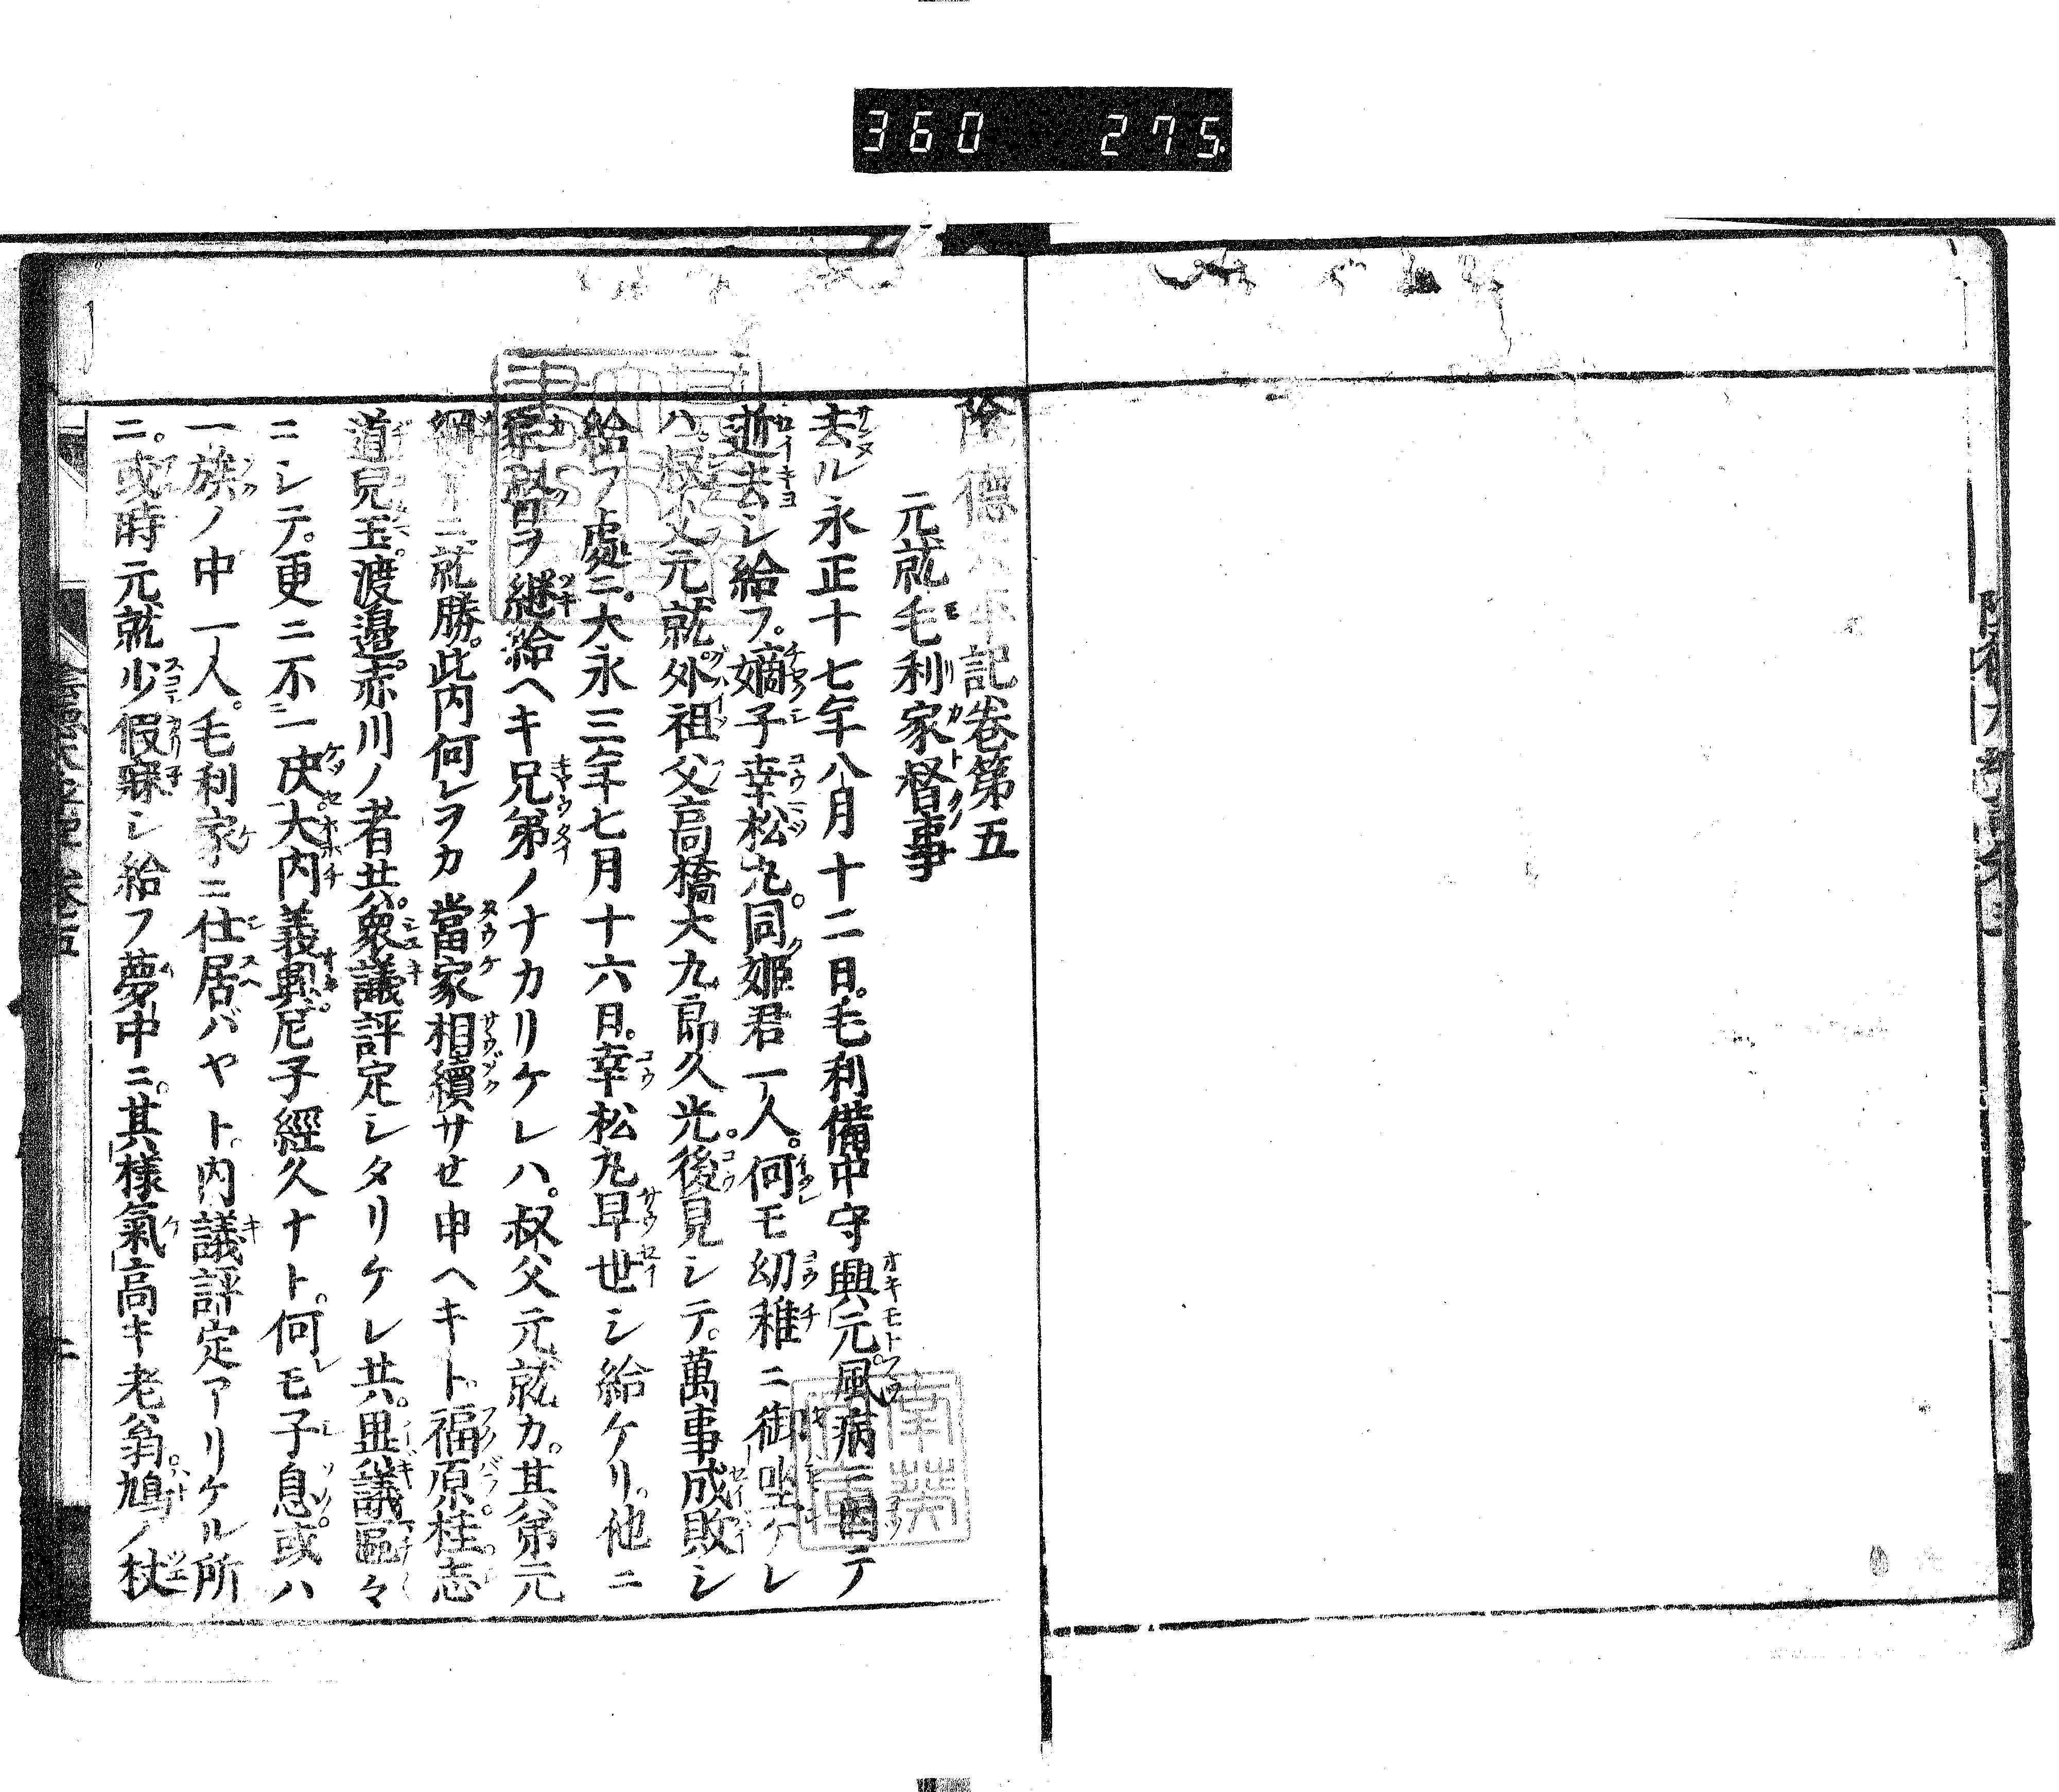 360 275
陰德太平記卷第五
元就毛利家督事
去ル永正十七年八月十二日。毛利備中守興元。風病ニ因テ
逝去シ給フ。嫡子幸松丸。同姬君一人。何モ幼稚ニ御坐ケレ
ハ。叔父元就。外祖父高橋大九郎久光。後見シテ。萬事成敗シ
給フ處ニ。大永三年七月十六日。幸松丸早世シ給ケリ。他ニ
家督ヲ繼給ヘキ兄弟ノナカリケレハ。叔父元就カ。其弟元
綱ニ就勝。此內何レヲカ當家相續サセ申ヘキト。福原。桂。志
道。兒玉。渡邉。赤川ノ者共。衆議評定シタリケレ共。異議區々
ニシテ。更ニ不一决。大內義興。尼子經久ナト。何レモ子息或ハ
一族ノ中一人。毛利家ニ仕居バヤト。內議評定アリケル所
ニ。或時元就少假寐シ給フ夢中ニ。其樣氣高キ老翁。鳩ノ杖